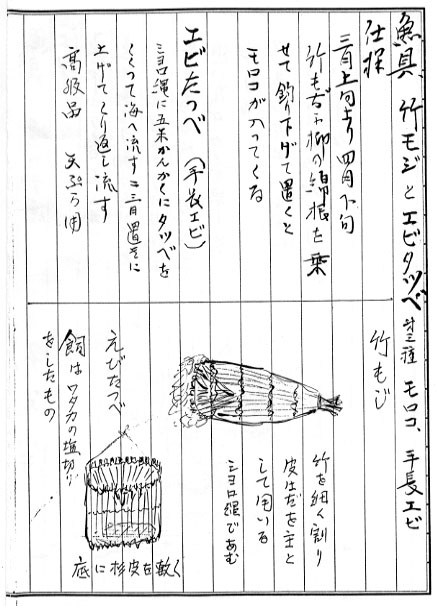 魚具、竹モジとエビタツベ 対 種 モロコ、手長エビ
仕掛
三月上旬より四月下句
竹もじへ柳の錦根を乗
せて釣り下げて置くと
モロコが入ってくる
エビたつべ(手長エビ)
ミヨロ縄に五米かんかくにタツベを
くくって海へ流す二三日置きに
上げてくり返し流す
高級品 天ぷら用
竹もじ
竹を細く割り
皮はだを主と
して用いる
ミヨロ縄であむ
えびたつべ
餌はワタカの塩切り
をしたもの
底に杉皮を敷く